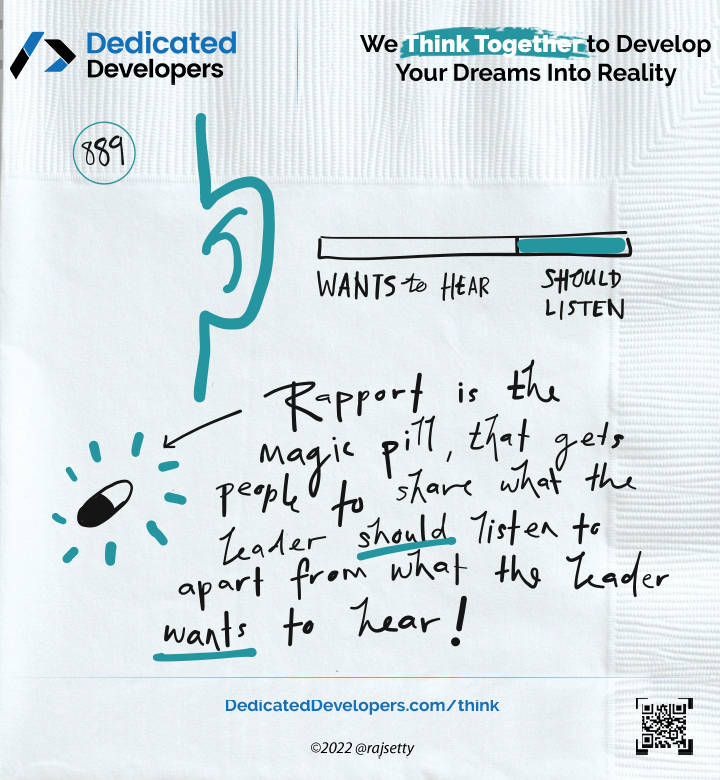 Dedicated
Developers
We Think Together to Develop
Your Dreams Into Reality
889
WANTS to HEAR
SHOULD
LISTEN
Rapport is the
magic pill, that gets
people to share what the
leader should listen to
apart from what the leader
wants to hear!
DedicatedDevelopers.com/think
©2022 @rajsetty